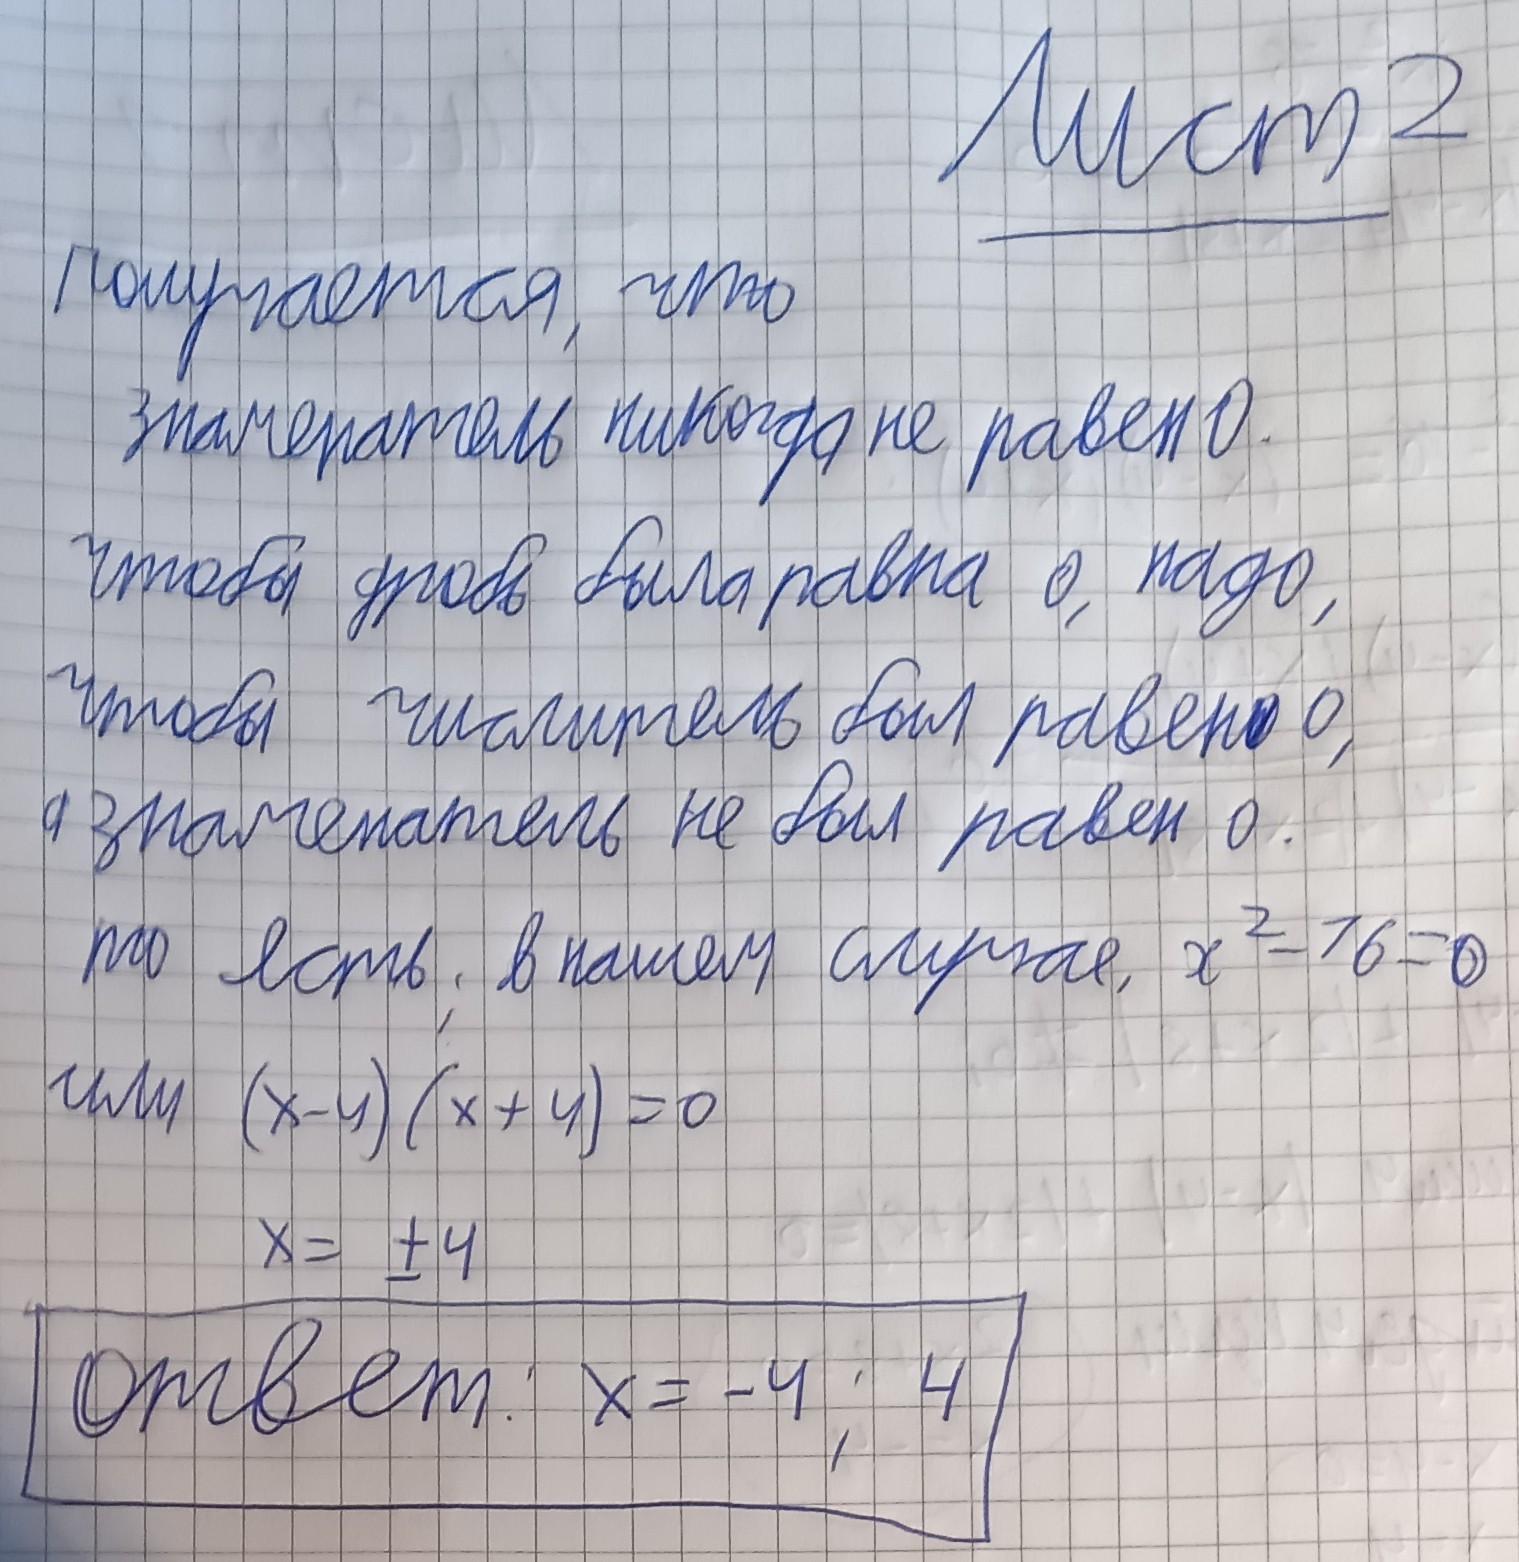 Лист 2
Получается, что
знаменатель никогда не равен 0.
чтобы дробь была равна 0, надо,
чтобы числитель был равен 0,
а знаменатель не был равен 0.
то есть, в нашем случае, x²-16=0
или (x-4)(x+4)=0
x= ±4
Ответ: x=-4; 4